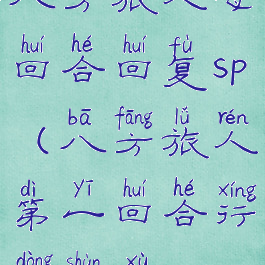 八方旅人每
huí hé huí fù
回合回复SP
bā fāng lǚ rén
（八方旅人
dì yī huí hé xíng
第一回合行
dòng shùn xù